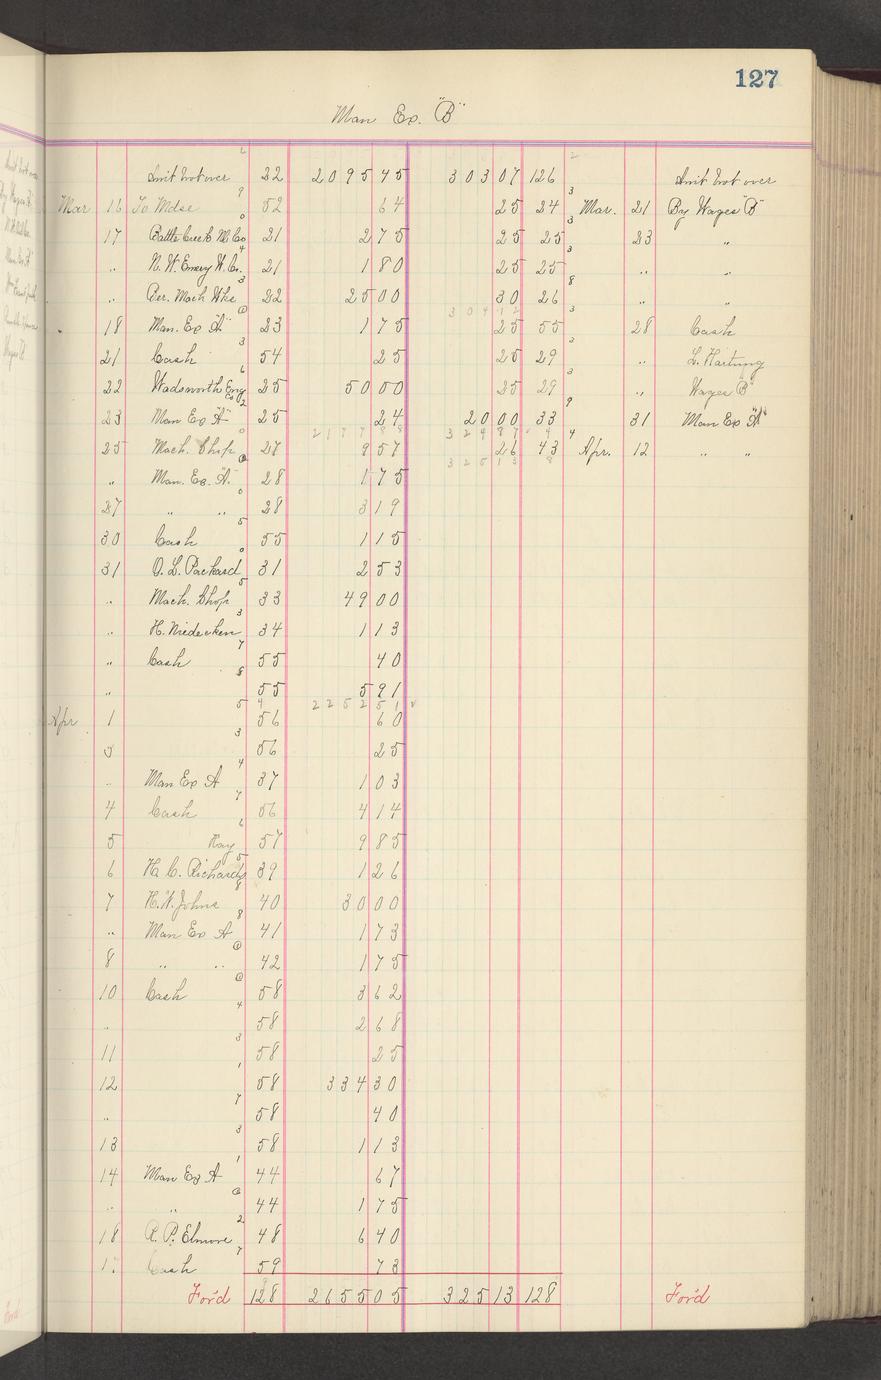 127
Man Ex. "B"
Amt brot over 22 2095 45 303 07 126 Amt brot over
Mar 16 To Mdse 52 64 25 24 Mar. 21 By Wages "B"
17 Battle Creek M. Co 21 2 75 25 25 23 "
" N. W. Emery W. Co. 21 1 80 25 25 " "
" Ber. Mach Wks 22 25 00 30 26 " "
304 12
18 Man. Ex "A" 23 1 75 25 55 28 Cash
21 Cash 54 25 25 29 " L. Hartung
22 Wadsworth Eng Co 25 50 00 25 29 " Wages "B"
23 Man Ex "A" 25 24 20 00 33 31 Man Ex "A"
2177 88 324 87
25 Mach. Shop 27 9 57 26 43 Apr. 12 " "
325 13
" Man. Ex. "A" 28 1 75
27 " " 28 3 19
30 Cash 55 1 15
31 O. L. Packard 31 2 53
" Mach. Shop 33 49 00
" H. Niedecken 34 1 13
" Cash 55 40
" 55 5 91
2252 51
Apr 1 56 60
3 56 25
" Man Ex A 37 1 03
4 Cash 56 4 14
5 Hay 57 9 85
6 H. C. Richards 39 1 26
7 H. W. Johns 40 30 00
" Man Ex A 41 1 73
8 " " 42 1 75
10 Cash 58 3 62
" 58 2 68
11 58 25
12 58 334 30
" 58 40
13 58 1 13
14 Man Ex A 44 67
" " 44 1 75
18 A. P. Elmore 48 6 40
Cash 59 73
For'd 128 2655 05 325 13 128 For'd